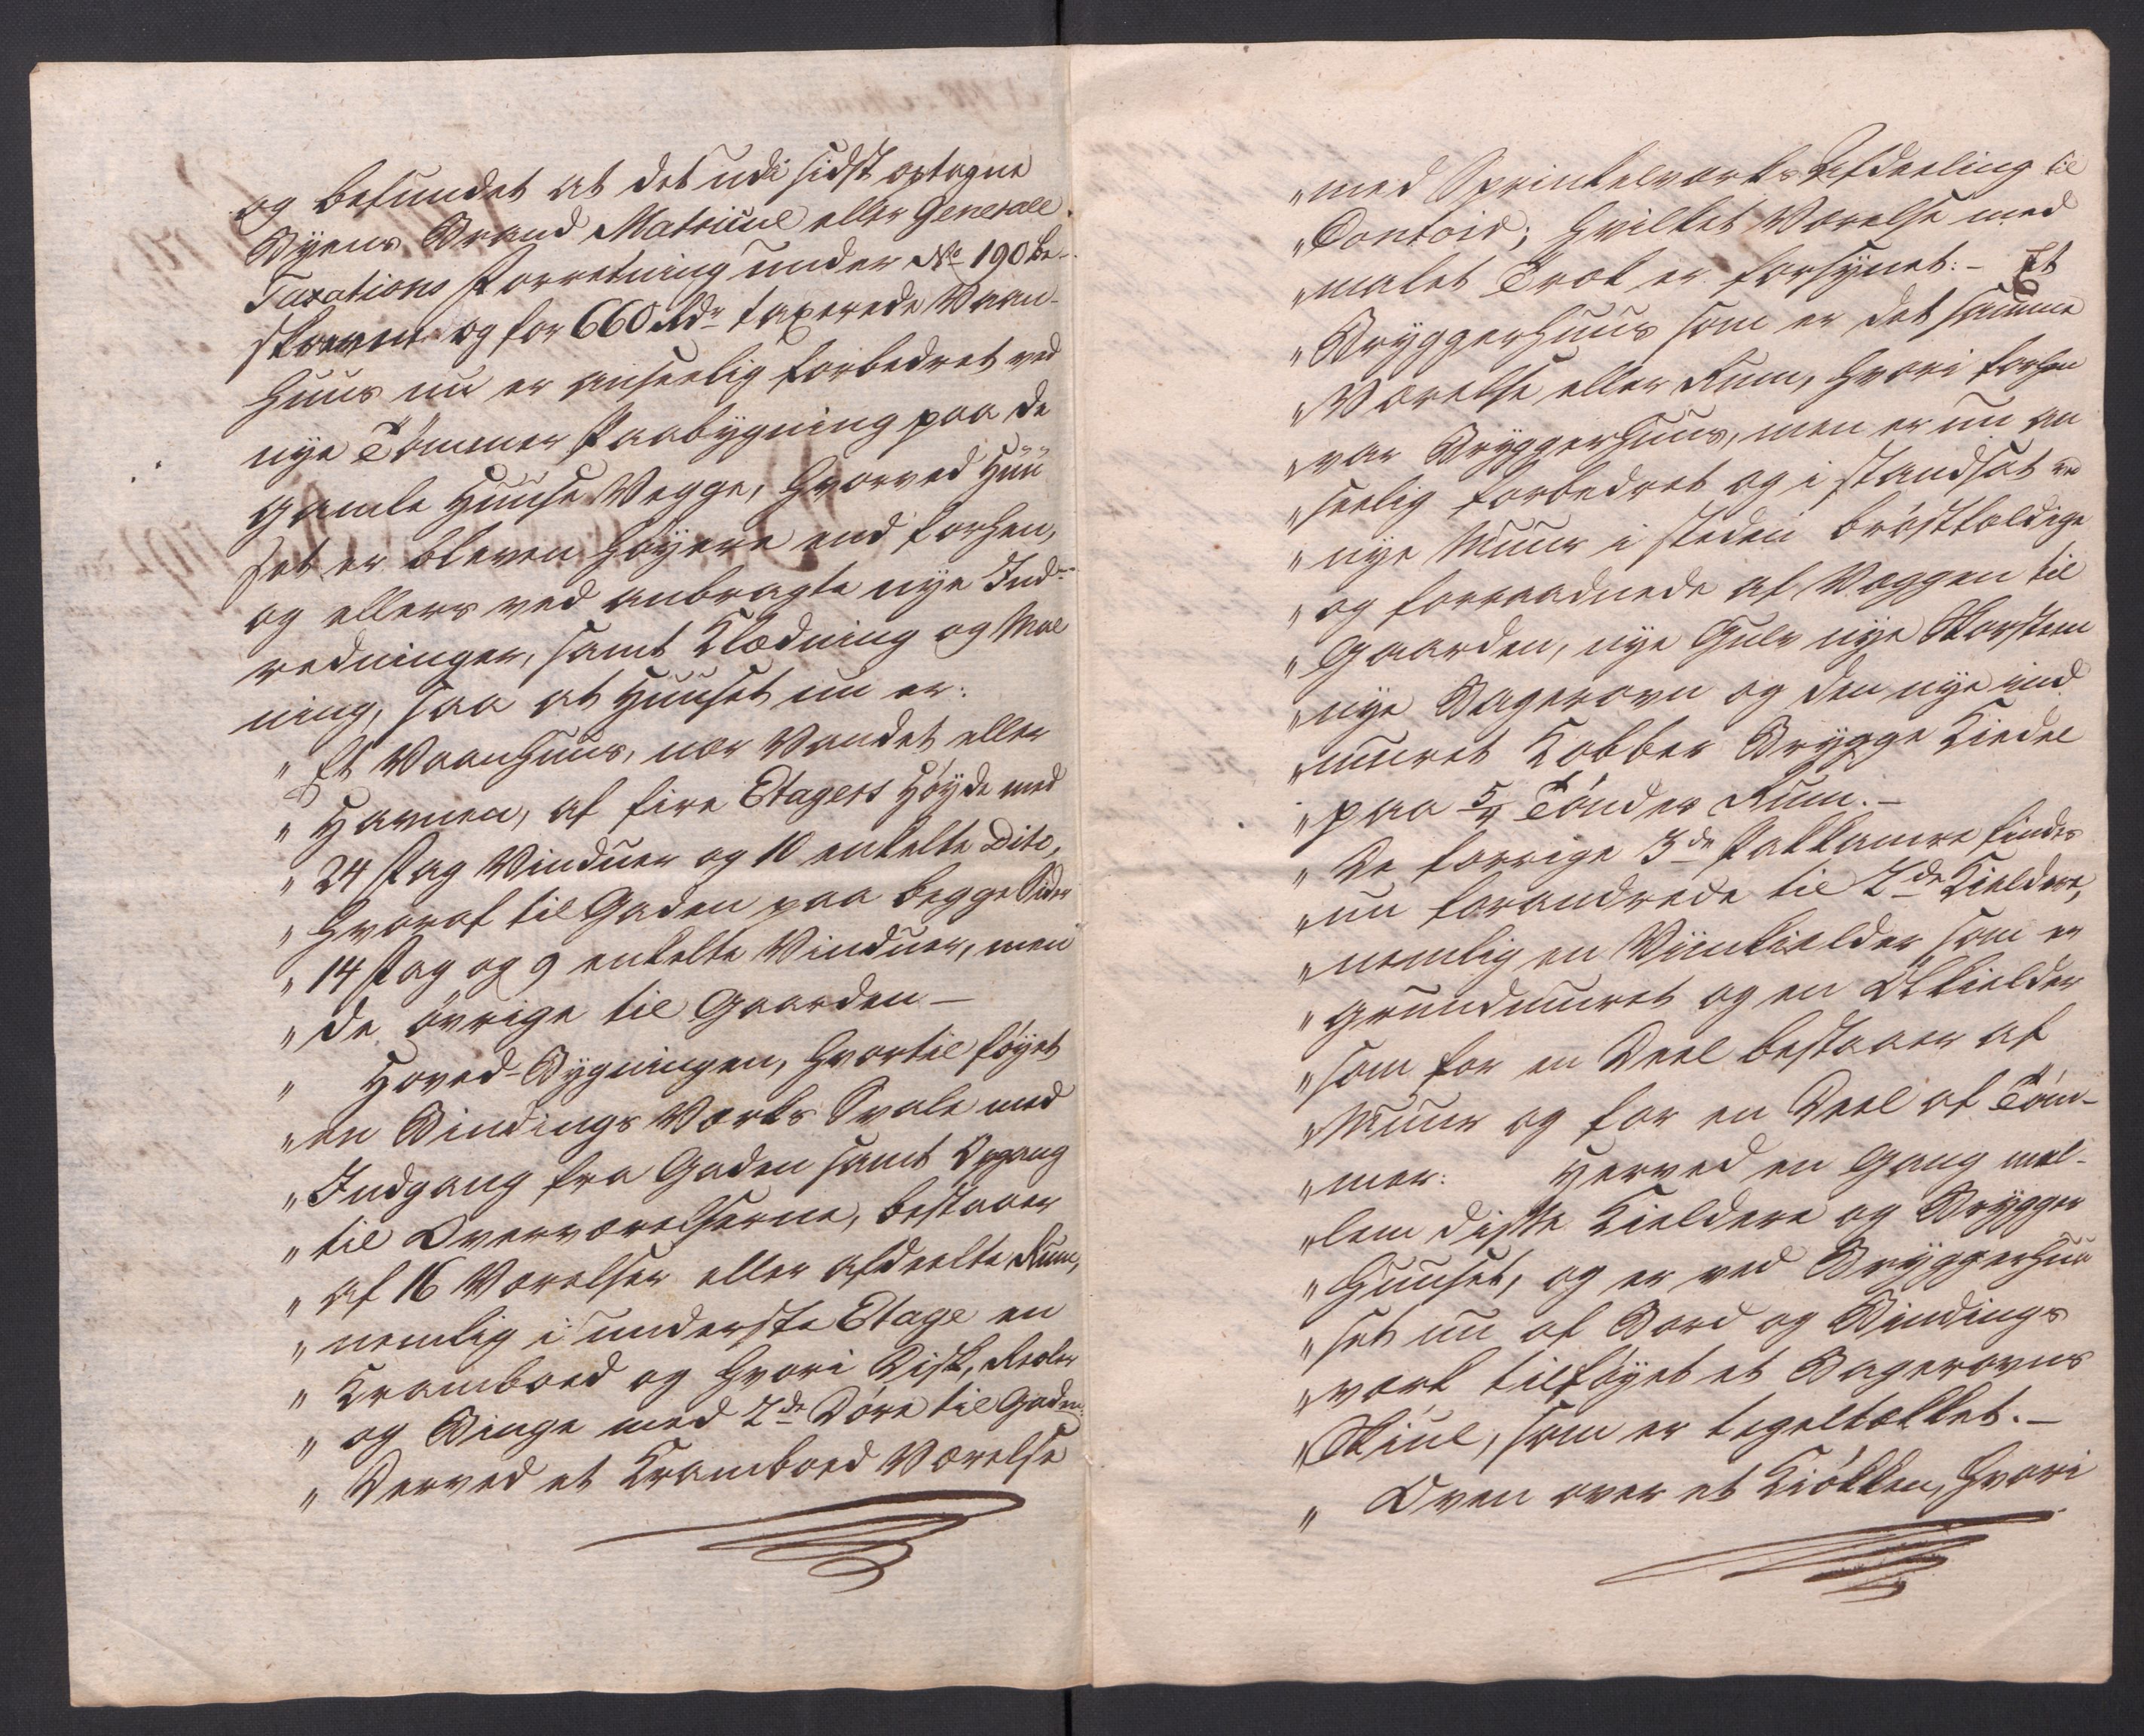 og befundet at det udi sidst optagne
Byens Brand Matricul eller Generale
Taxations Forretning under No 190 be-
skreven og for 660 Rdr taxerede Vaan-
huus nu er anseelig forbedret ved
nye Tømmer Paabygning paa de
gamle Huuse Vegge, hvorved Huu
set er bleven høyere end forhen,
og ellers ved anbragte nye Ind-
redninger, samt Klædning og Mal
ning, saa at Huuset nu er:
" Et Vaanhuus, nær Vandet eller
" Havnen, af fire Etagers Høyde med
" 24 Fag Vinduer og 10 enkelte Dito,
" hvoraf til Gaden paa begge Sider
" 14 Fag og 9 enkelte Vinduer, men
" de øvrige til Gaarden –
" Hoved-Bygningen, hvortil føyet
" en Bindings Værks Svale med
" Indgang fra Gaden samt Opgang
" til Overværelserne, bestaaer
" af 16 Værelser eller afdeelte Rum,
" nemlig i underste Etage en
" Kramboed og hvori Disk, Reoler
" og Binge med 2de Døre til Gaden:
" Derved et Kramboed Værelse
" med Sprinkelværks Afdeeling til
" Contoir; hvilket Værelse med
" malet Træk er forsynet: – Et
" Bryggerhuus som er det samme
" Værelse eller Rum, hvori forhen
" var Bryggerhuus, men er nu an
" seelig forbedret og i standsat ved
" nye Muur i steden brøstfoldige
" og forraadnede af Væggen til
" Gaarden, nye Gulv nye Skorsteen
" nye Bagerovn og den nye ind
" muret Kobber Brygge Kiedel
" paa 5/4 Tønder Rum. –
" De forrige 3de Pakkamre findes
" nu forandrede til 2de Kieldere,
" nemlig en Viinkielder som er
" grundmuret og en Ölkielder
" som for en Deel bestaaer af
" Muur og for en Deel af Tøm-
" mer: Herved en Gang mel-
" lem disse Kieldere og Brygger
" Huuset, og er ved Bryggerhuu
" set nu af Bord og Bindings
" værk tilføyet et Bagerovns
" Skiul, som er tegeltækket. –
" Oven over et Kiøkken, hvori